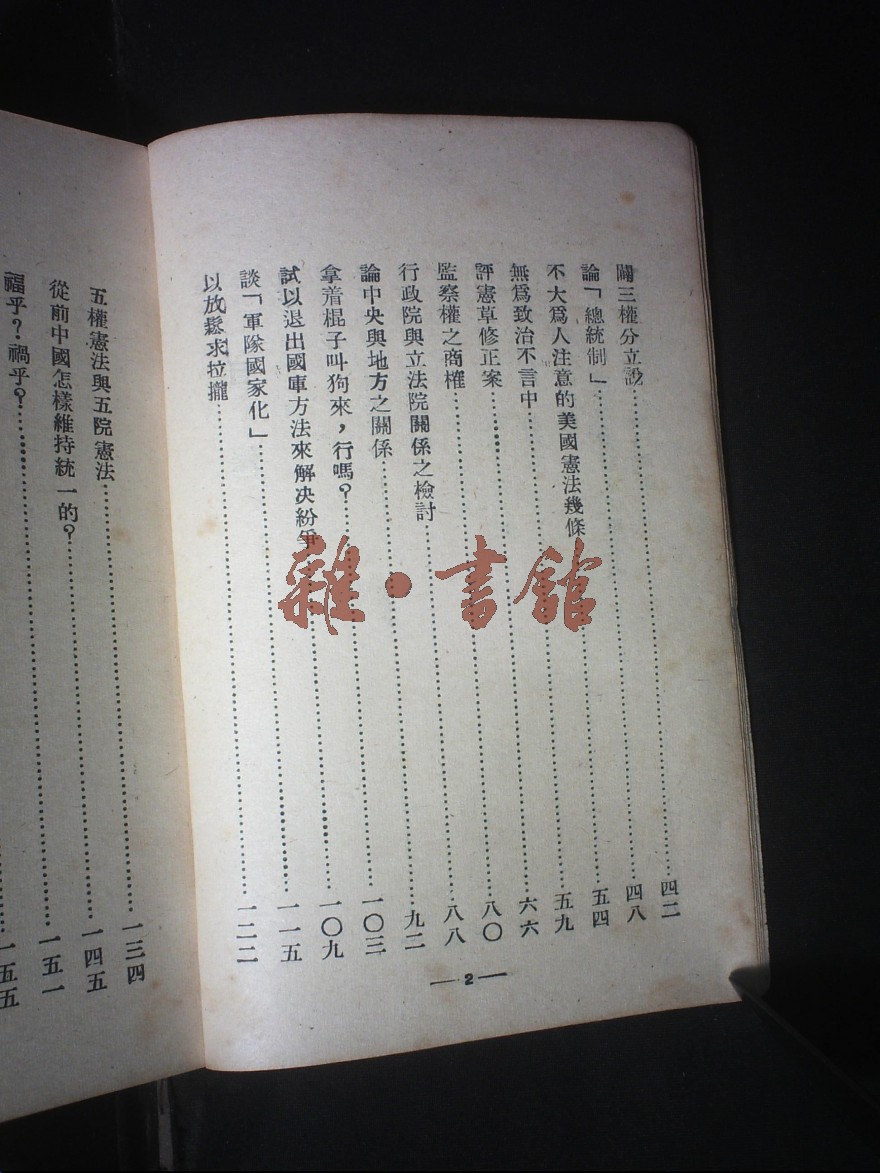 闢三權分立說……四二
論「總統制」……四八
不大爲人注意的美國憲法幾條……五四
無爲致治不言中……五九
評憲草修正案……六六
監察權之商權……八〇
行政院與立法院關係之檢討……八八
論中央與地方之關係……九二
拿着棍子叫狗來，行嗎？……一〇三
試以退出國庫方法來解决紛爭……一〇九
談「軍隊國家化」……一一五
以放鬆求拉攏……一二二
—2—
五權憲法與五院憲法……一三四
從前中國怎樣維持統一的？……一四五
福乎？禍乎？……一五一
一五五
雜·書館